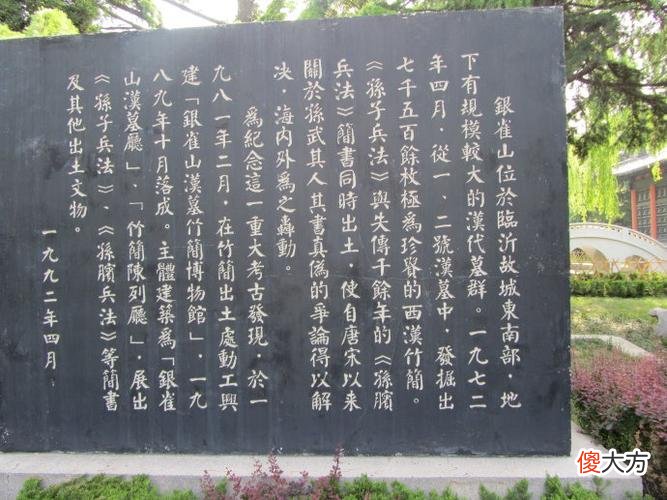 銀雀山位於臨沂故城東南部，地
下有規模較大的漢代墓群。一九七二
年四月，從一、二號漢墓中，發掘出
七千五百餘枚極爲珍貴的西漢竹簡。
《孫子兵法》與失傳千餘年的《孫臏
兵法》簡書同時出土，使自唐宋以來
關於孫武其人其書真僞的爭論得以解
决，海内外爲之轟動。
爲紀念這一重大考古發現，於一
九八一年二月，在竹簡出土處動工興
建「銀雀山漢墓竹簡博物館」，一九
八九年十月落成。主體建築爲「銀雀
山漢墓廳」、「竹簡陳列廳」，展出
《孫子兵法》、《孫臏兵法》等簡書
及其他出土文物。
一九九二年四月
傻大方